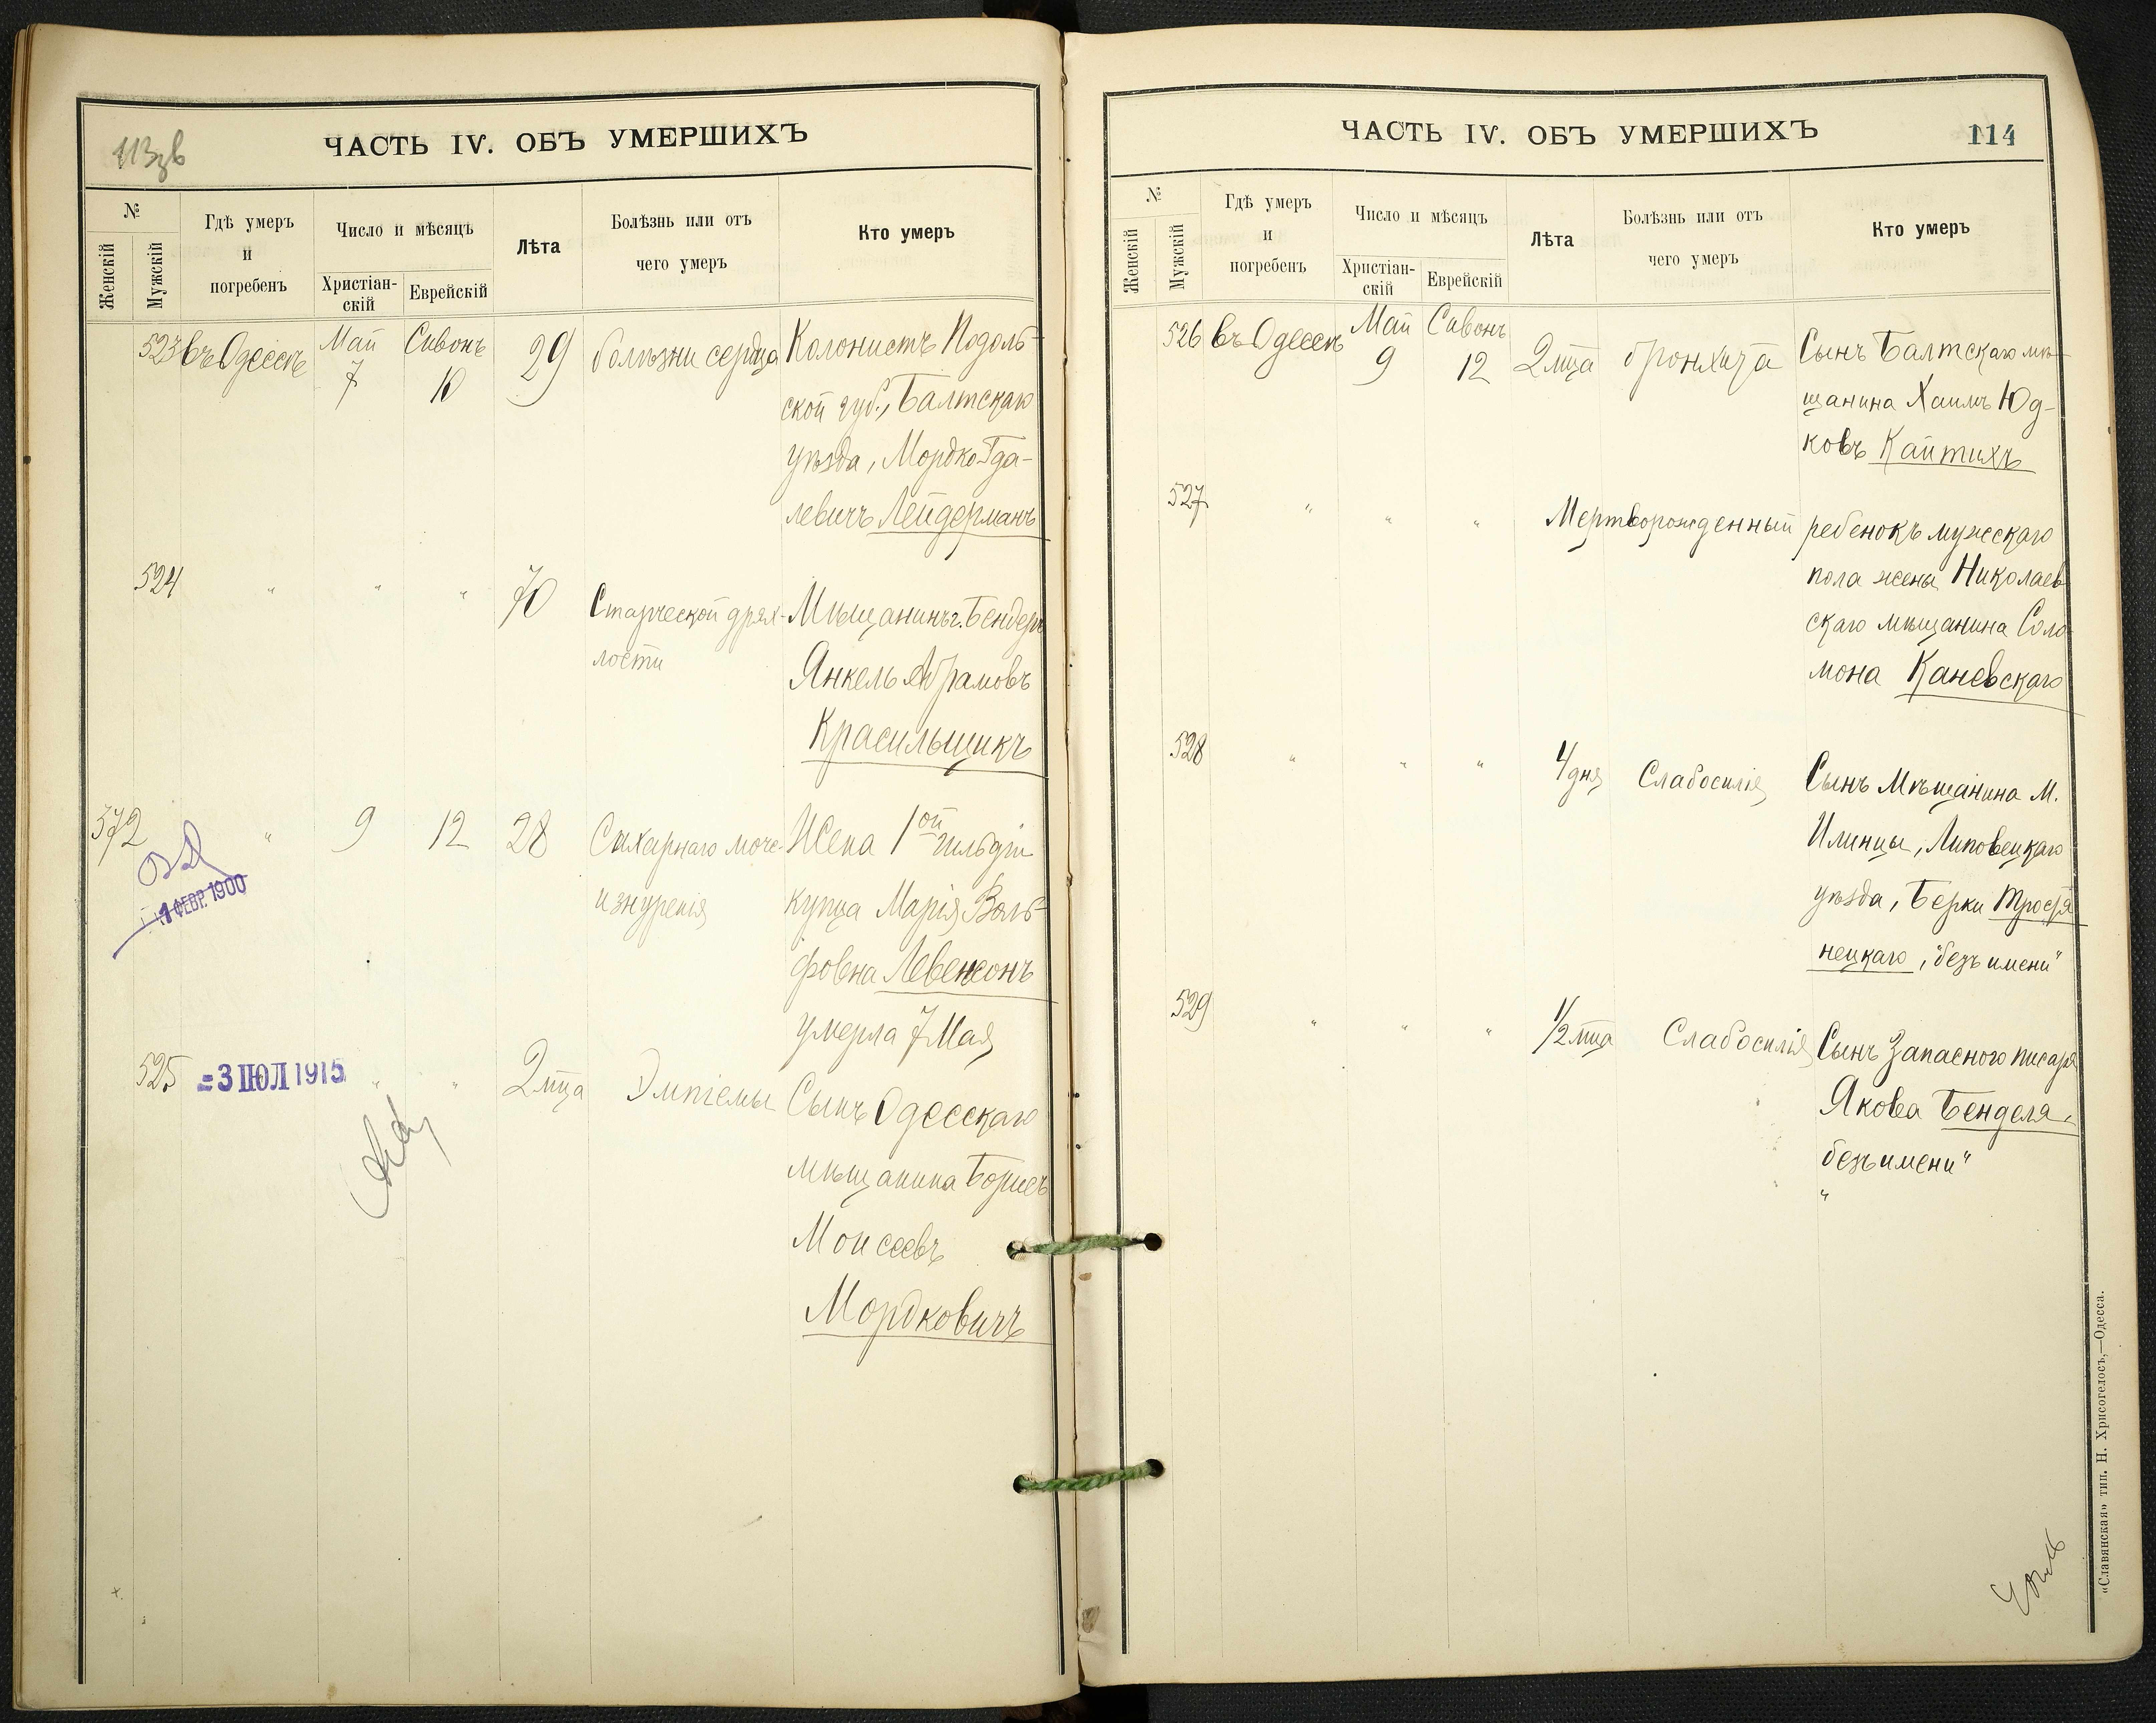 113 зв
ЧАСТЬ IV. ОБЪ УМЕРШИХЪ
№
Женскій
Мужскій
Гдѣ умеръ
и
погребенъ
Число и мѣсяцъ
Христіан-
скій
Еврейскій
Лѣта
Болѣзнь или отъ
чего умеръ
Кто умеръ
523 въ Одессѣ Май Сивонъ 29 болѣзни сердца Колонистъ Подоль-
7 10 ской губ., Балтскаго
уѣзда, Мордко Гда-
левичъ Лейдерманъ
524 " " " 70 Старческой дрях- Мѣщанинъ г. Бендеръ
лости Янкель Абрамовъ
Красильщикъ
372 " 9 12 28 Сахарнаго моче- Жена 1ой гильдіи
изнуренія купца Марія Воль-
фовна Левенсонъ
умерла 7 Мая
1 ФЕВР. 1900
525 " " 2 мца Эмпіемы Сынъ Одесскаго
-3 ІЮЛ 1915
мѣщанина Борисъ
Моисеевъ
Мордковичъ
ЧАСТЬ IV. ОБЪ УМЕРШИХЪ
114
№
Женскій
Мужскій
Гдѣ умеръ
и
погребенъ
Число и мѣсяцъ
Христіан-
скій
Еврейскій
Лѣта
Болѣзнь или отъ
чего умеръ
Кто умеръ
526 въ Одессѣ Май Сивонъ 2 мца бронхита Сынъ Балтскаго мѣ-
9 12 щанина Хаимъ Юд-
ковъ Кайтихъ
527 " " " Мертворожденный ребенокъ мужескаго
пола жены Николаев-
скаго мѣщанина Соло-
мона Каневскаго
528 " " " 4 дня Слабосилія Сынъ Мѣщанина м.
Илинцы, Липовецкаго
уѣзда, Берки Тростя-
нецкаго, "безъ имени"
529 " " " 1/2 мца Слабосилія Сынъ Запасного писаря
Якова Бенделя
"безъ имени"
«Славянская» тип. Н. Хрисогелосъ,—Одесса.